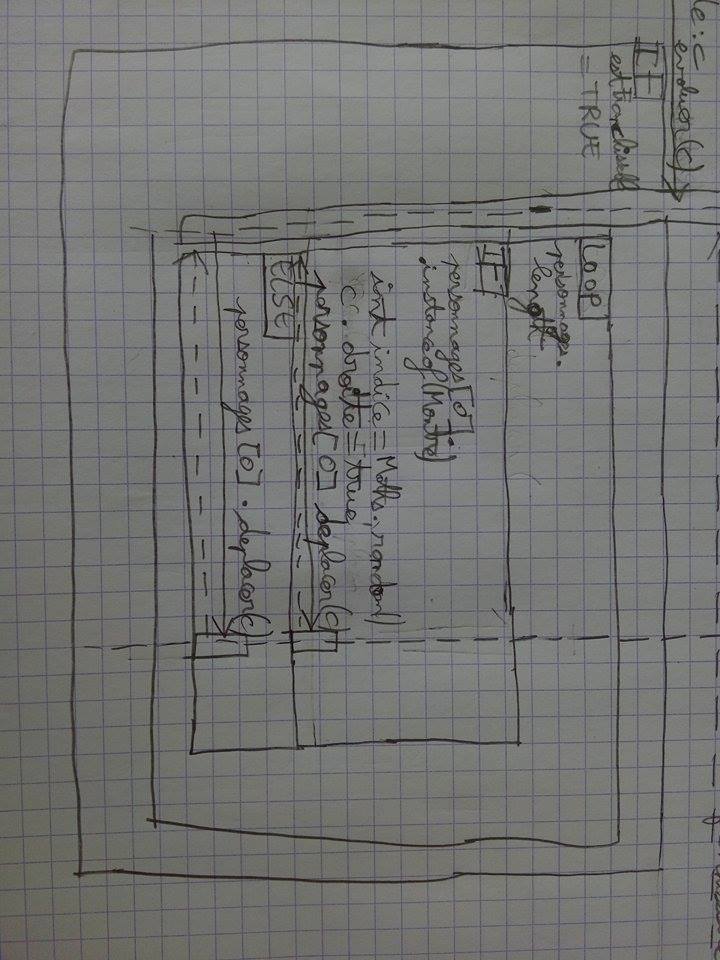 le : c
evoluer(c)
IF
estfranchissable
= TRUE
Loop
personnages.
length
IF
personnages[0].
instanceof(Monstre)
int indice = Maths.random()
c.droite = true
personnages[0].deplacer(c)
ELSE
personnages[0].deplacer(c)